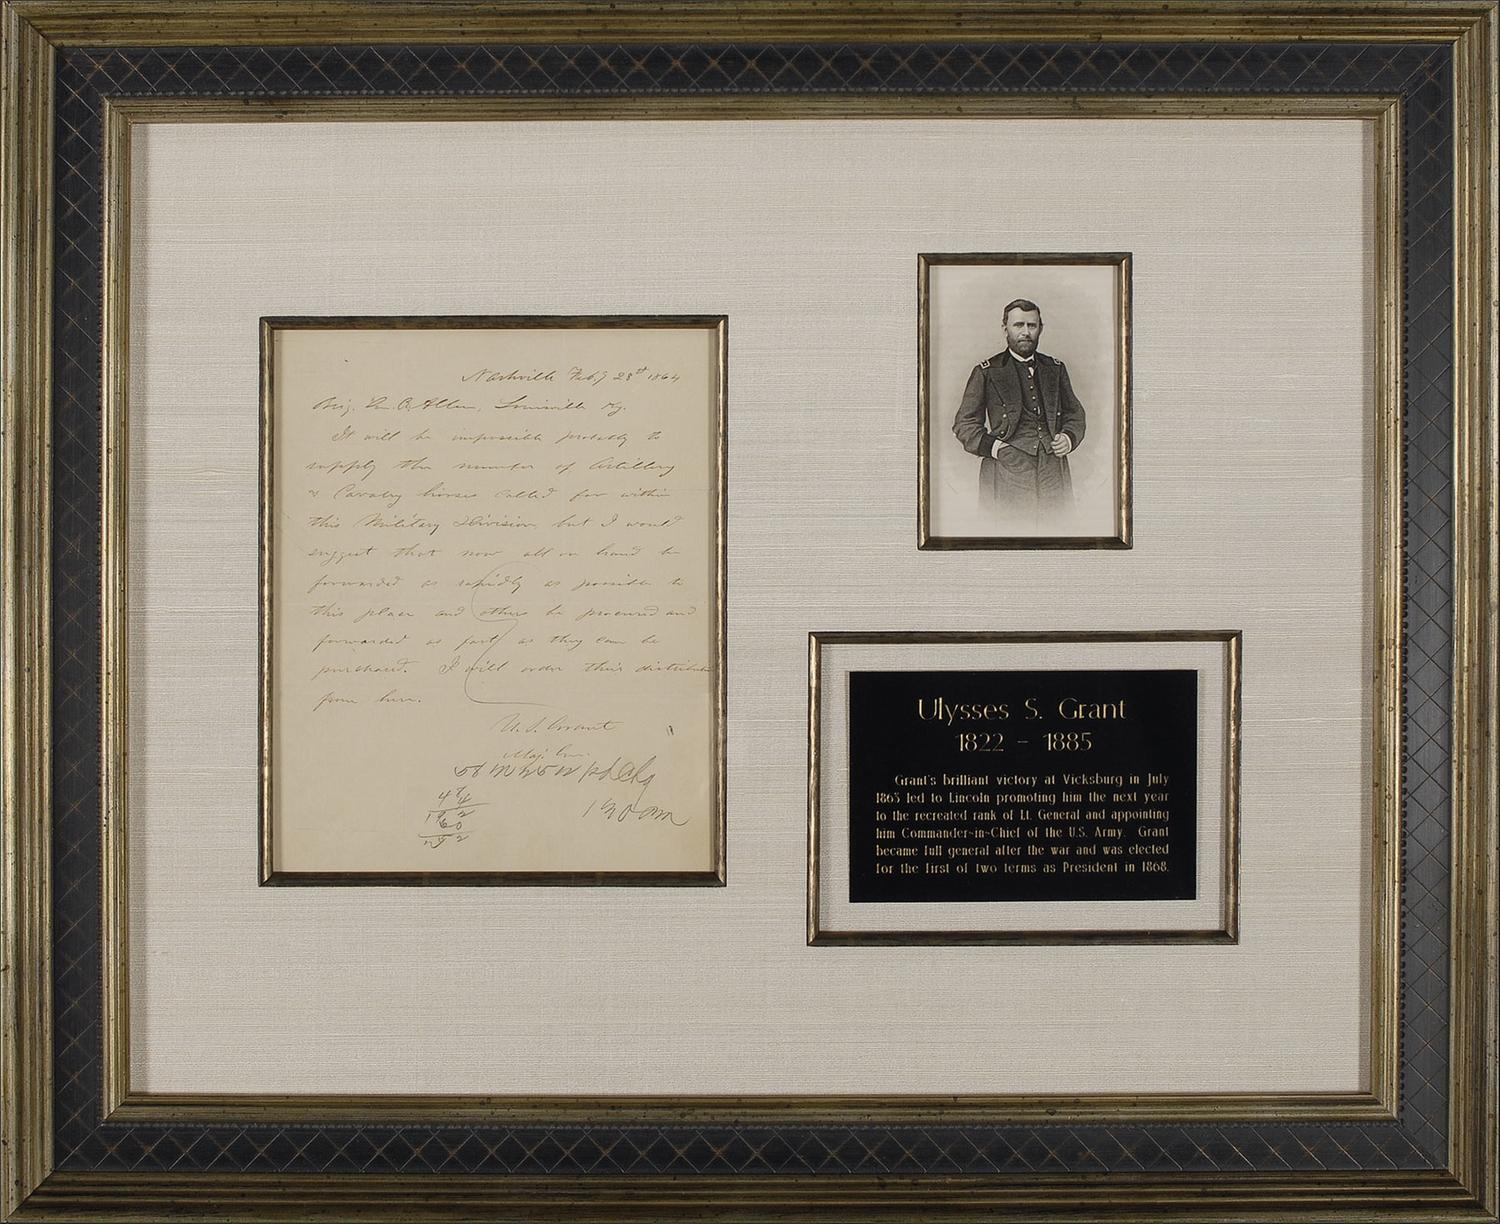 Nashville Feb.y 28th 1864
Brig. Gn. R. Allen, Louisville Ky.
It will be impossible probably to
supply the number of Artillery
& Cavalry horses called for within
this Military Division, but I would
suggest that now all on hand be
forwarded as rapidly as possible to
this place and others be procured and
forwarded as fast as they can be
purchased. I will order their distribution
from here.
U. S. Grant
Maj. Gn.
58
47
60
130 am
Ulysses S. Grant
1822 - 1885
Grant's brilliant victory at Vicksburg in July
1863 led to Lincoln promoting him the next year
to the recreated rank of Lt. General and appointing
him Commander-in-Chief of the U.S. Army. Grant
became full general after the war and was elected
for the first of two terms as President in 1868.